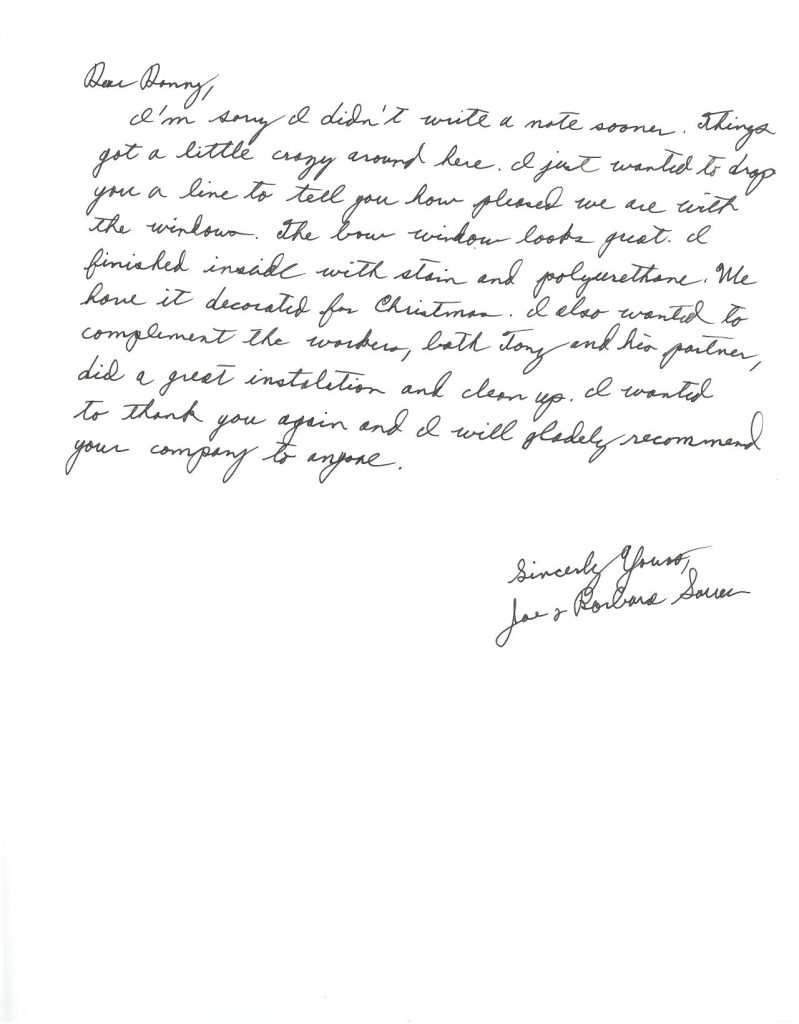 Dear Donny,
I'm sorry I didn't write a note sooner. Things
got a little crazy around here. I just wanted to drop
you a line to tell you how pleased we are with
the windows. The bow window looks great. I
finished inside with stain and polyurethane. We
have it decorated for Christmas. I also wanted to
complement the workers, both Tony and his partner,
did a great instalation and clean up. I wanted
to thank you again and I will gladely recommend
your company to anyone.
Sincerly Yours,
Joe & Barbara